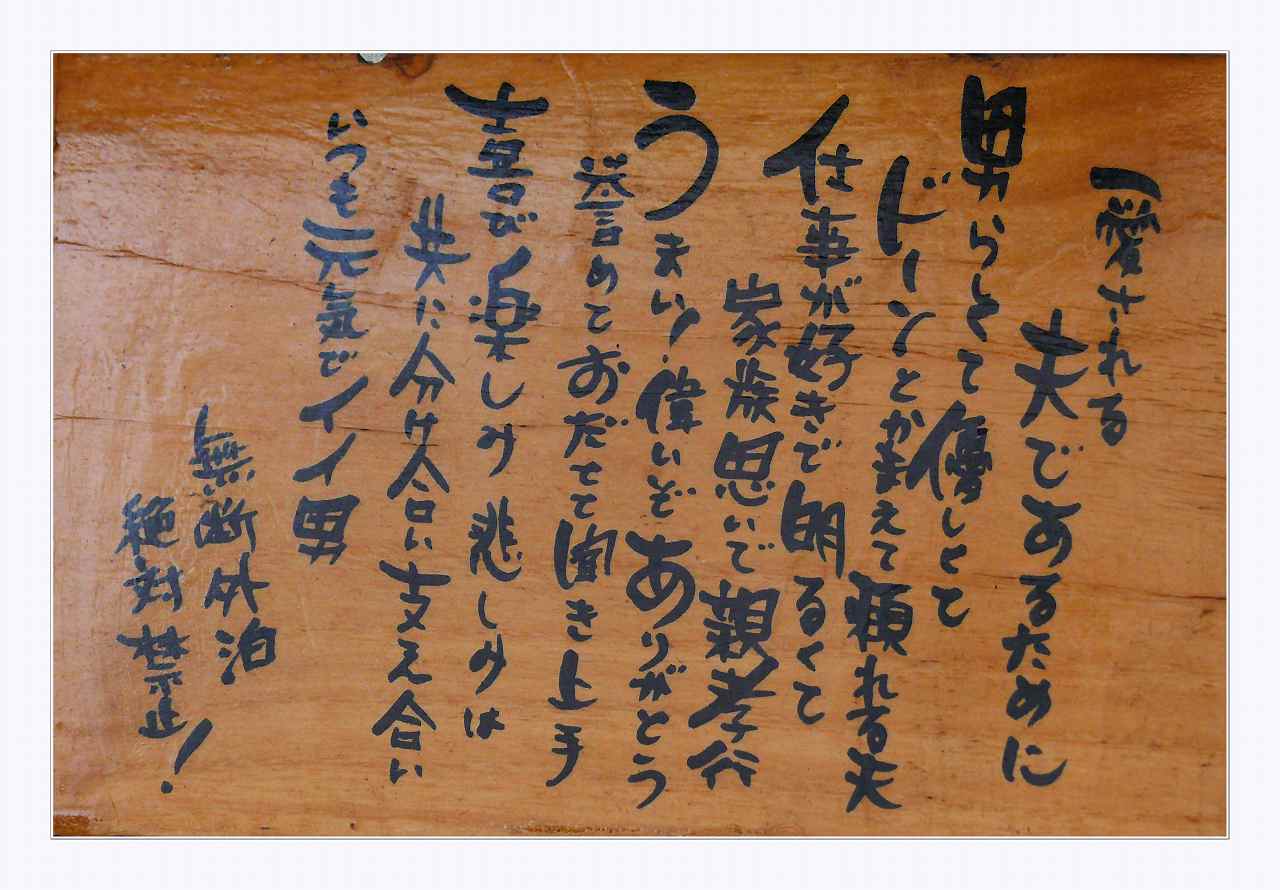 一愛される
夫であるために
男らしくて優しくて
ドーンとかまえて頼れる夫
仕事が好きで明るくて
家族思いで親孝行
うまい!偉いぞありがとう
誉めておだてて聞き上手
喜び楽しみ悲しみは
共に分け合い支え合い
いつも元気でイイ男
無断外泊
絶対禁止!